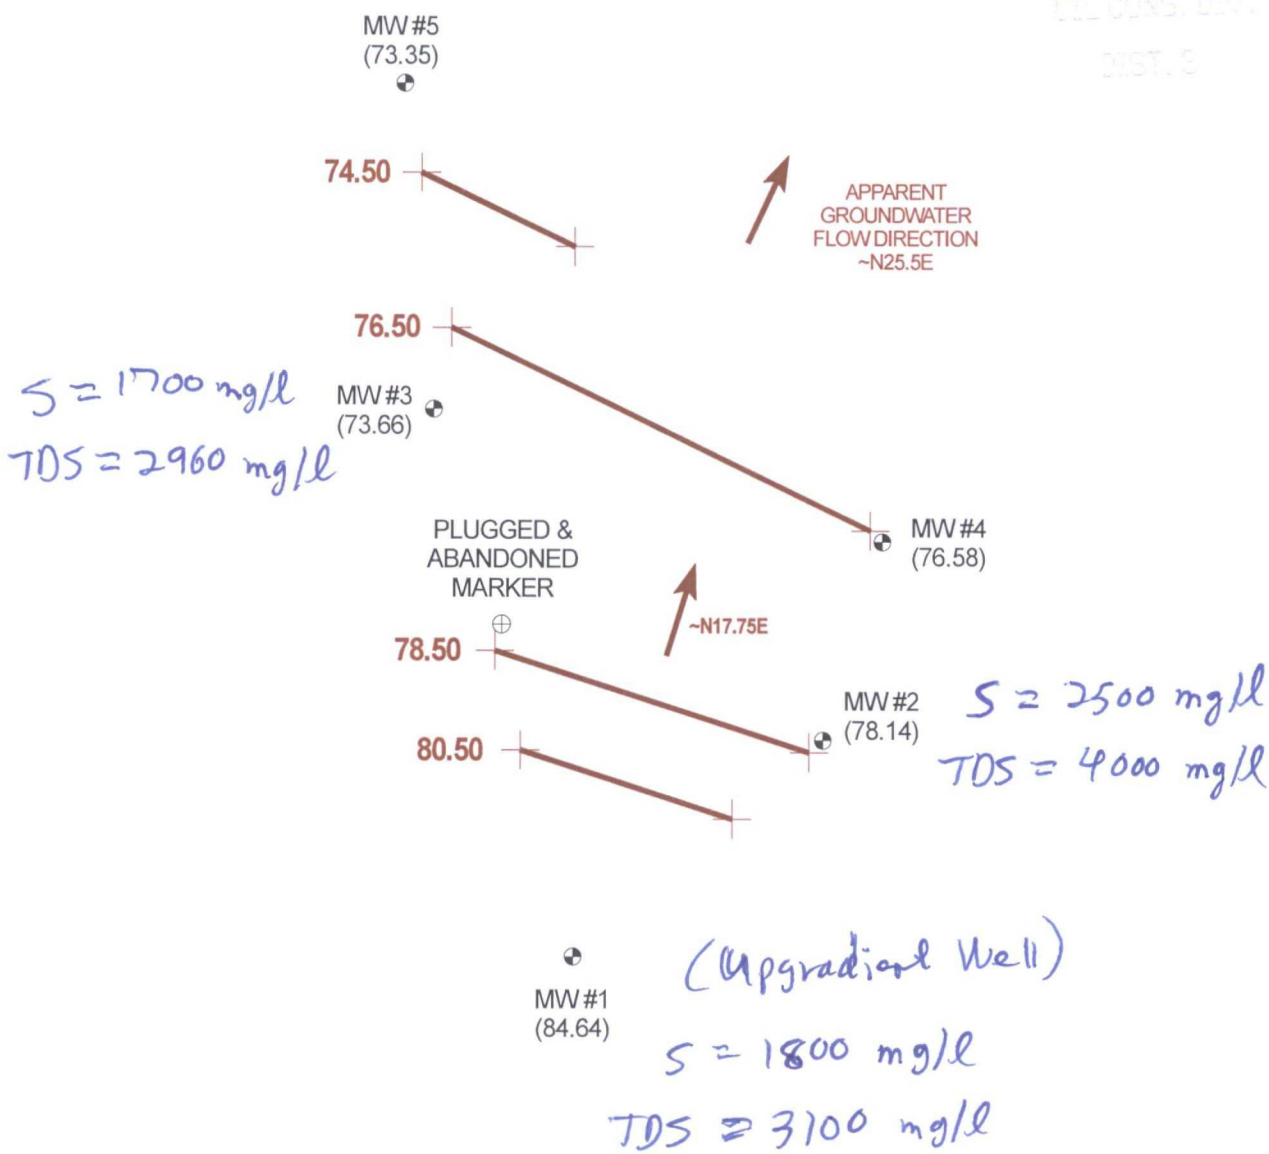 OIL CONS. DIV.
DIST. 3
MW #5
(73.35)
74.50
APPARENT
GROUNDWATER
FLOW DIRECTION
~N25.5E
76.50
S = 1700 mg/l
TDS = 2960 mg/l
MW #3
(73.66)
PLUGGED &
ABANDONED
MARKER
MW #4
(76.58)
~N17.75E
78.50
MW #2
(78.14)
S = 2500 mg/l
TDS = 4000 mg/l
80.50
MW #1
(84.64)
(Upgradient Well)
S = 1800 mg/l
TDS = 3100 mg/l